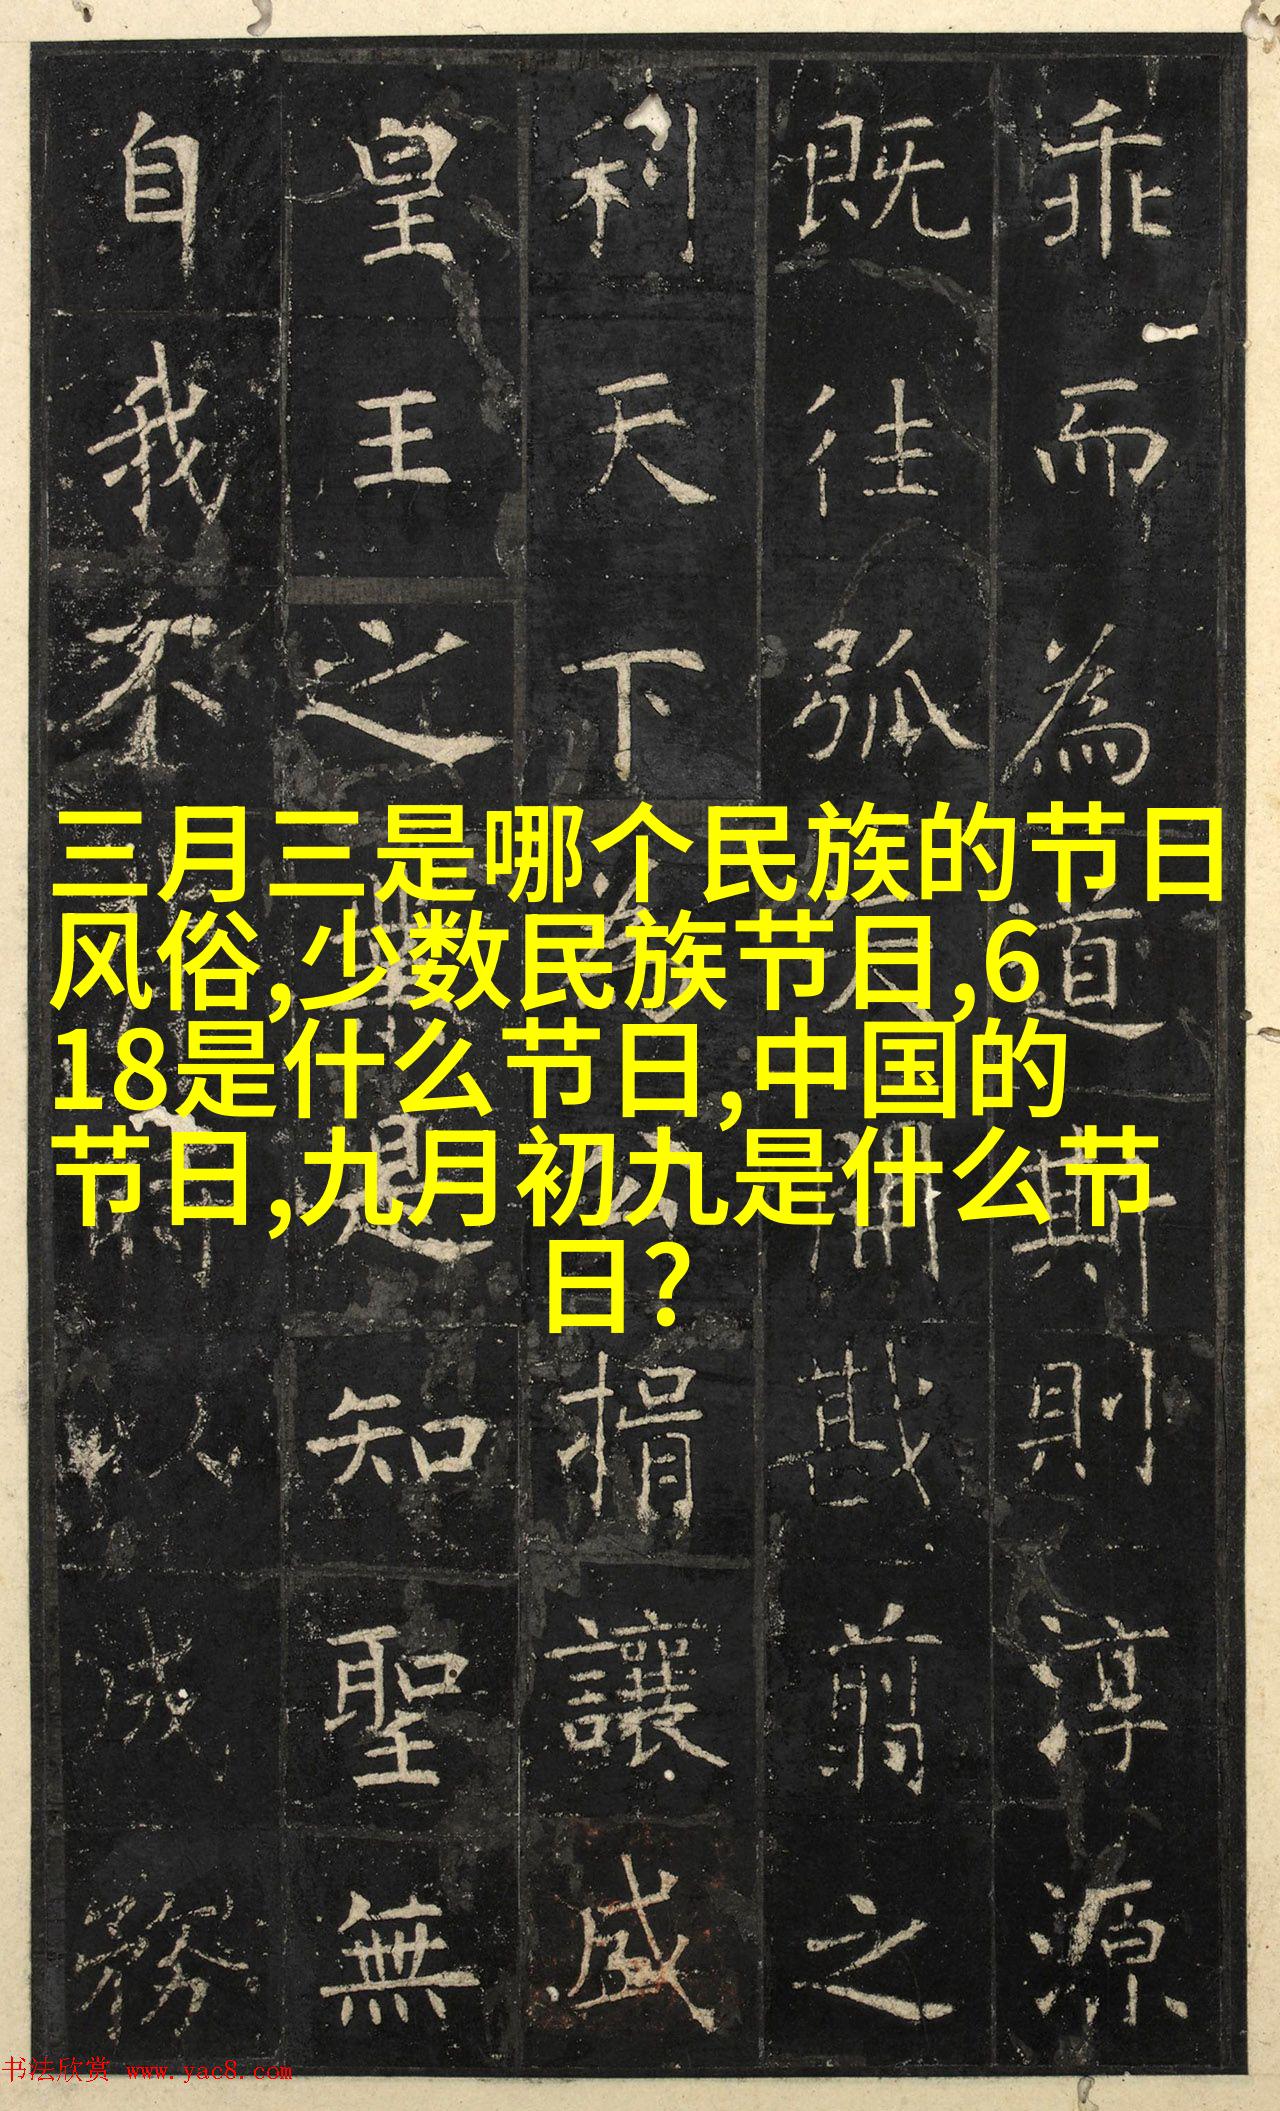 乖而為道斯則淳源
既往弧戡翦之
利天下揖讓威
皇王之是知聖無
自我不務
三月三是哪个民族的节日
风俗,少数民族节日,6
18是什么节日,中国的
节日,九月初九是什么节
日?
书法欣赏 www.yac8.com